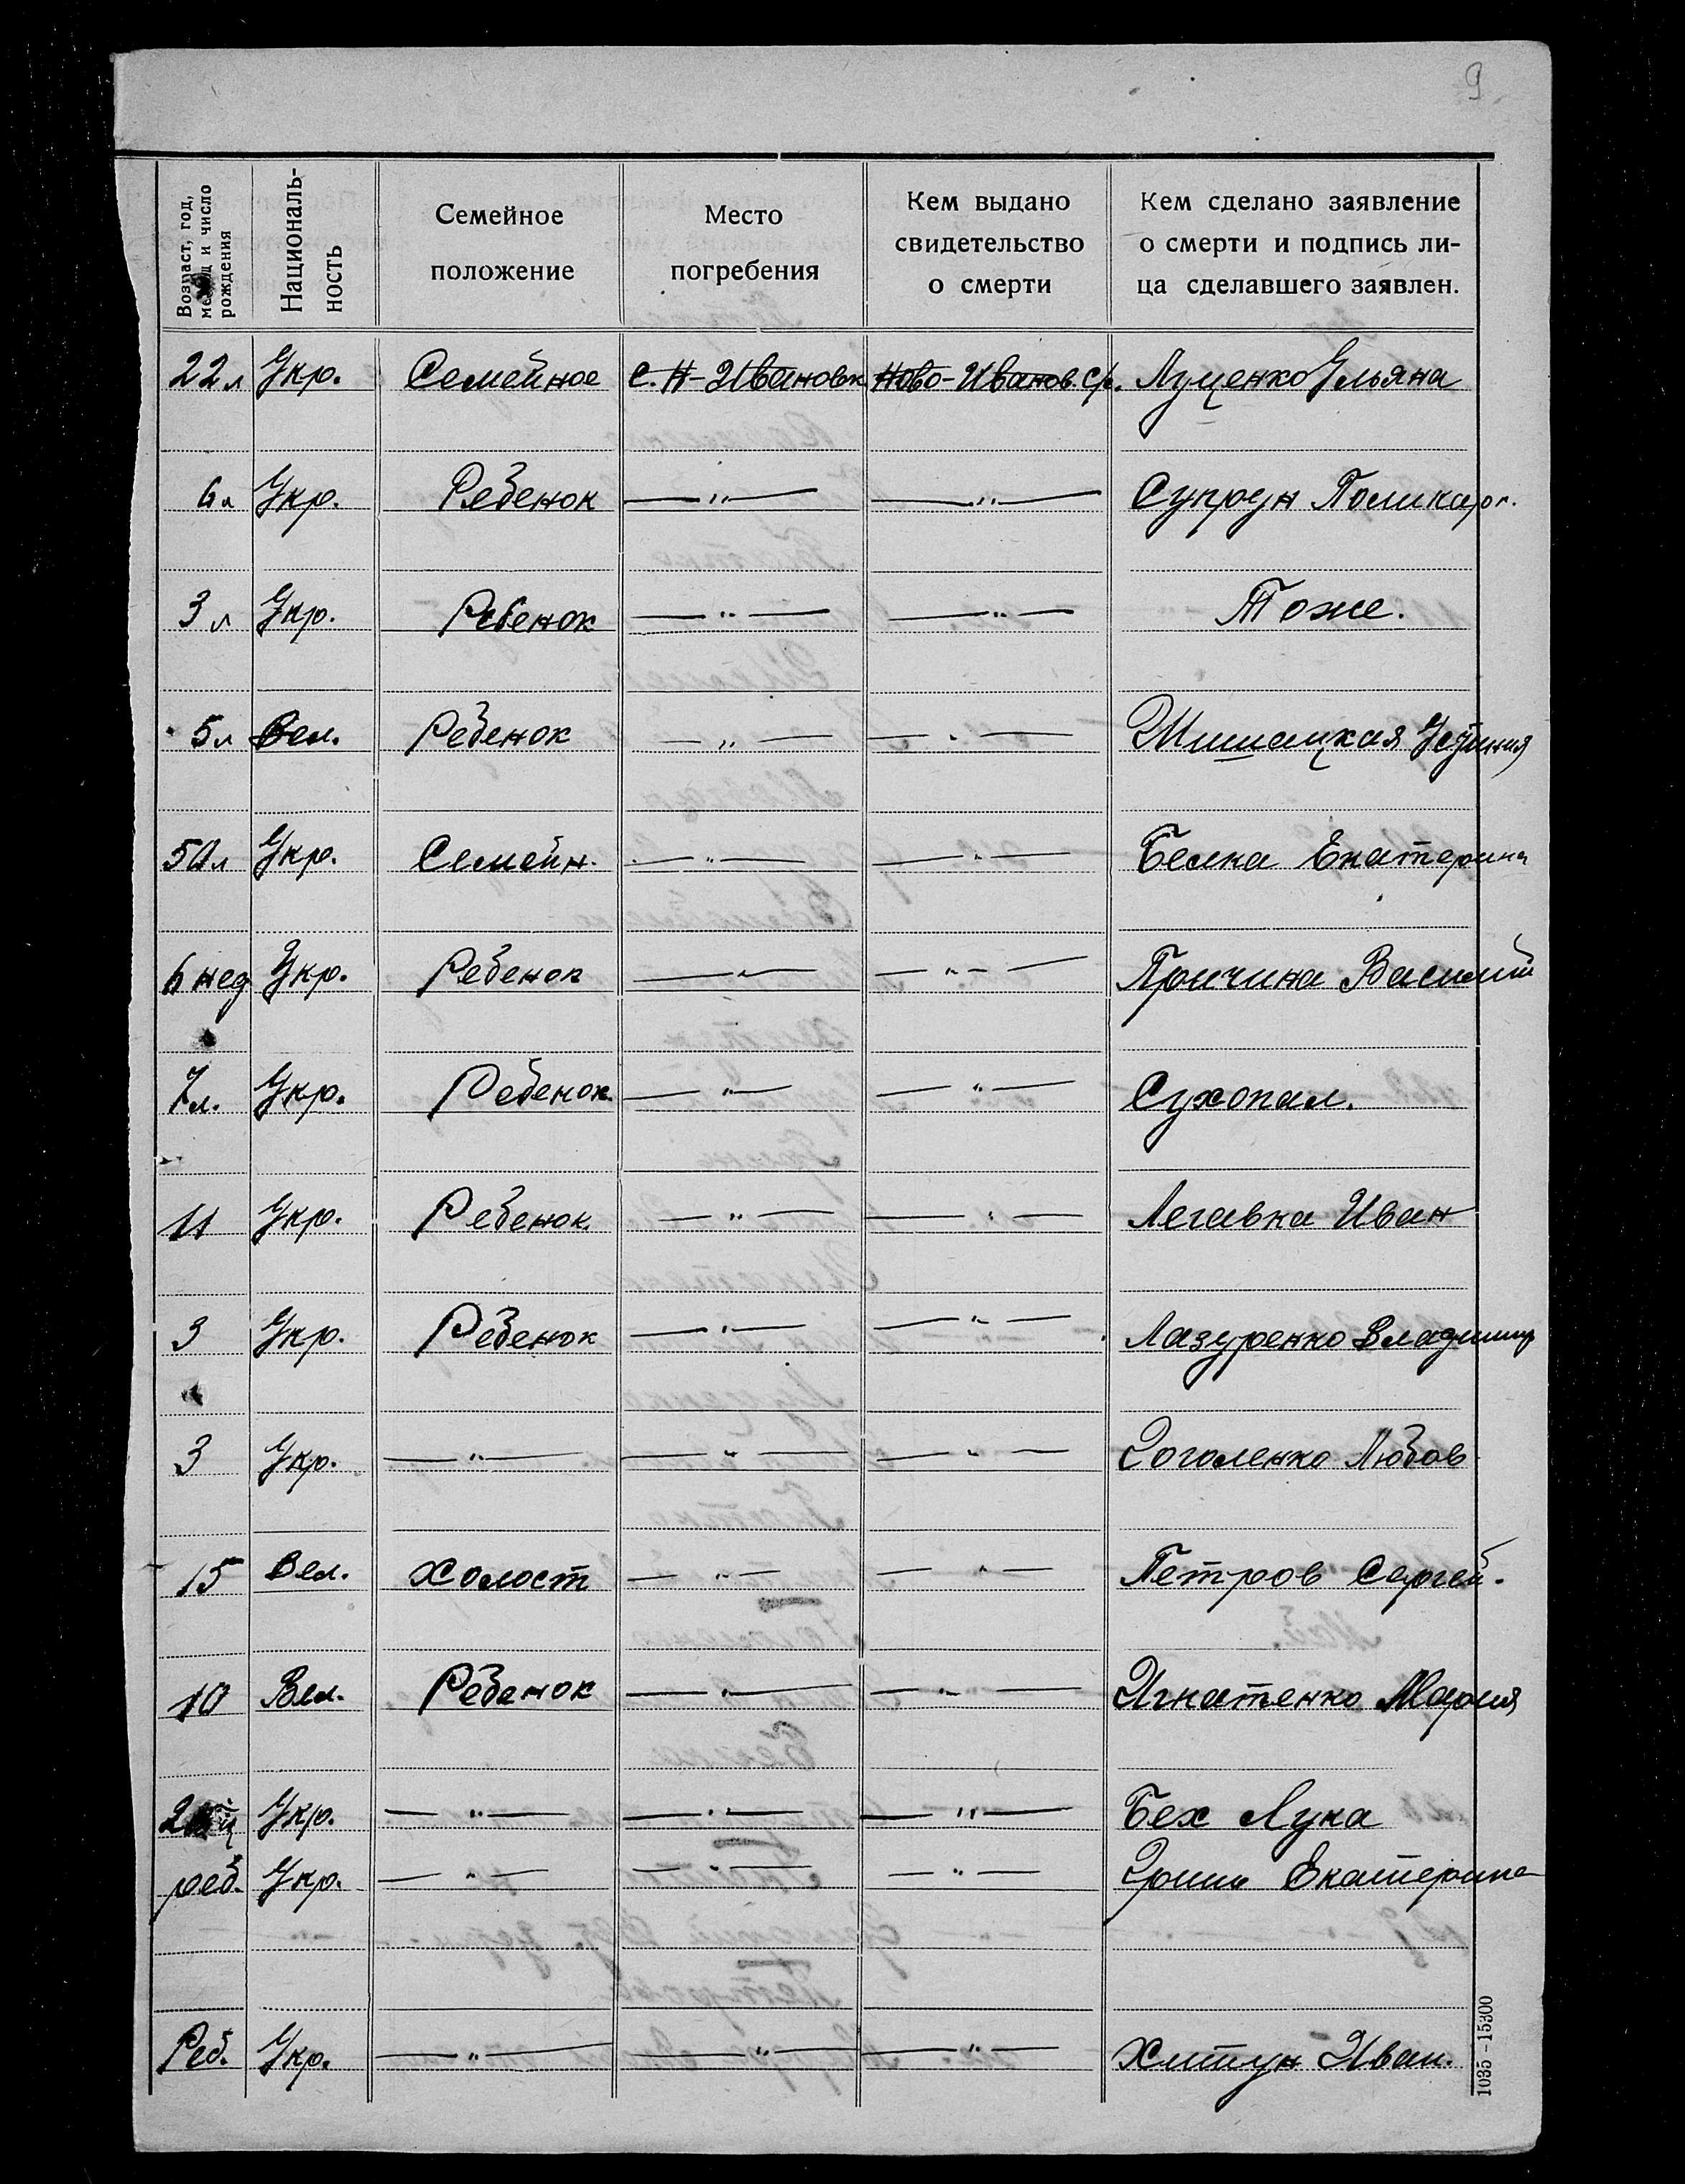 9
Возраст, год, месяц и число рождения
Националь-
ность
Семейное
положение
Место
погребения
Кем выдано
свидетельство
о смерти
Кем сделано заявление
о смерти и подпись ли-
ца сделавшего заявлен.
22 л Укр. Семейное с. Н-Ивановк. Ново-Иванов. с/с. Луценко Ульяна
6 л Укр. Ребенок —„— —„— Супрун Поликарп.
3 л Укр. Ребенок —„— —„— Тоже.
5 л Вел. Ребенок —„— —„— Шишацкая Устиния
50 л Укр. Семейн. —„— —„— Белка Екатерина
6 нед Укр. Ребенок —„— —„— Причина Василий
7 л. Укр. Ребенок. —„— —„— Сухопал.
11 Укр. Ребенок. —„— —„— Легавка Иван
3 Укр. Ребенок —„— —„— Лазуренко Владимир
3 Укр. —„— —„— —„— Гоголенко Любов
15 Вел. Холост —„— —„— Петров Сергей.
10 Вел. Ребенок —„— —„— Игнатенко Мария
2 Укр. —„— —„— —„— Бех Лука
реб. Укр. —„— —„— —„— Екатерина
Реб. Укр. —„— —„— —„— Хитун Иван.
1035-15300